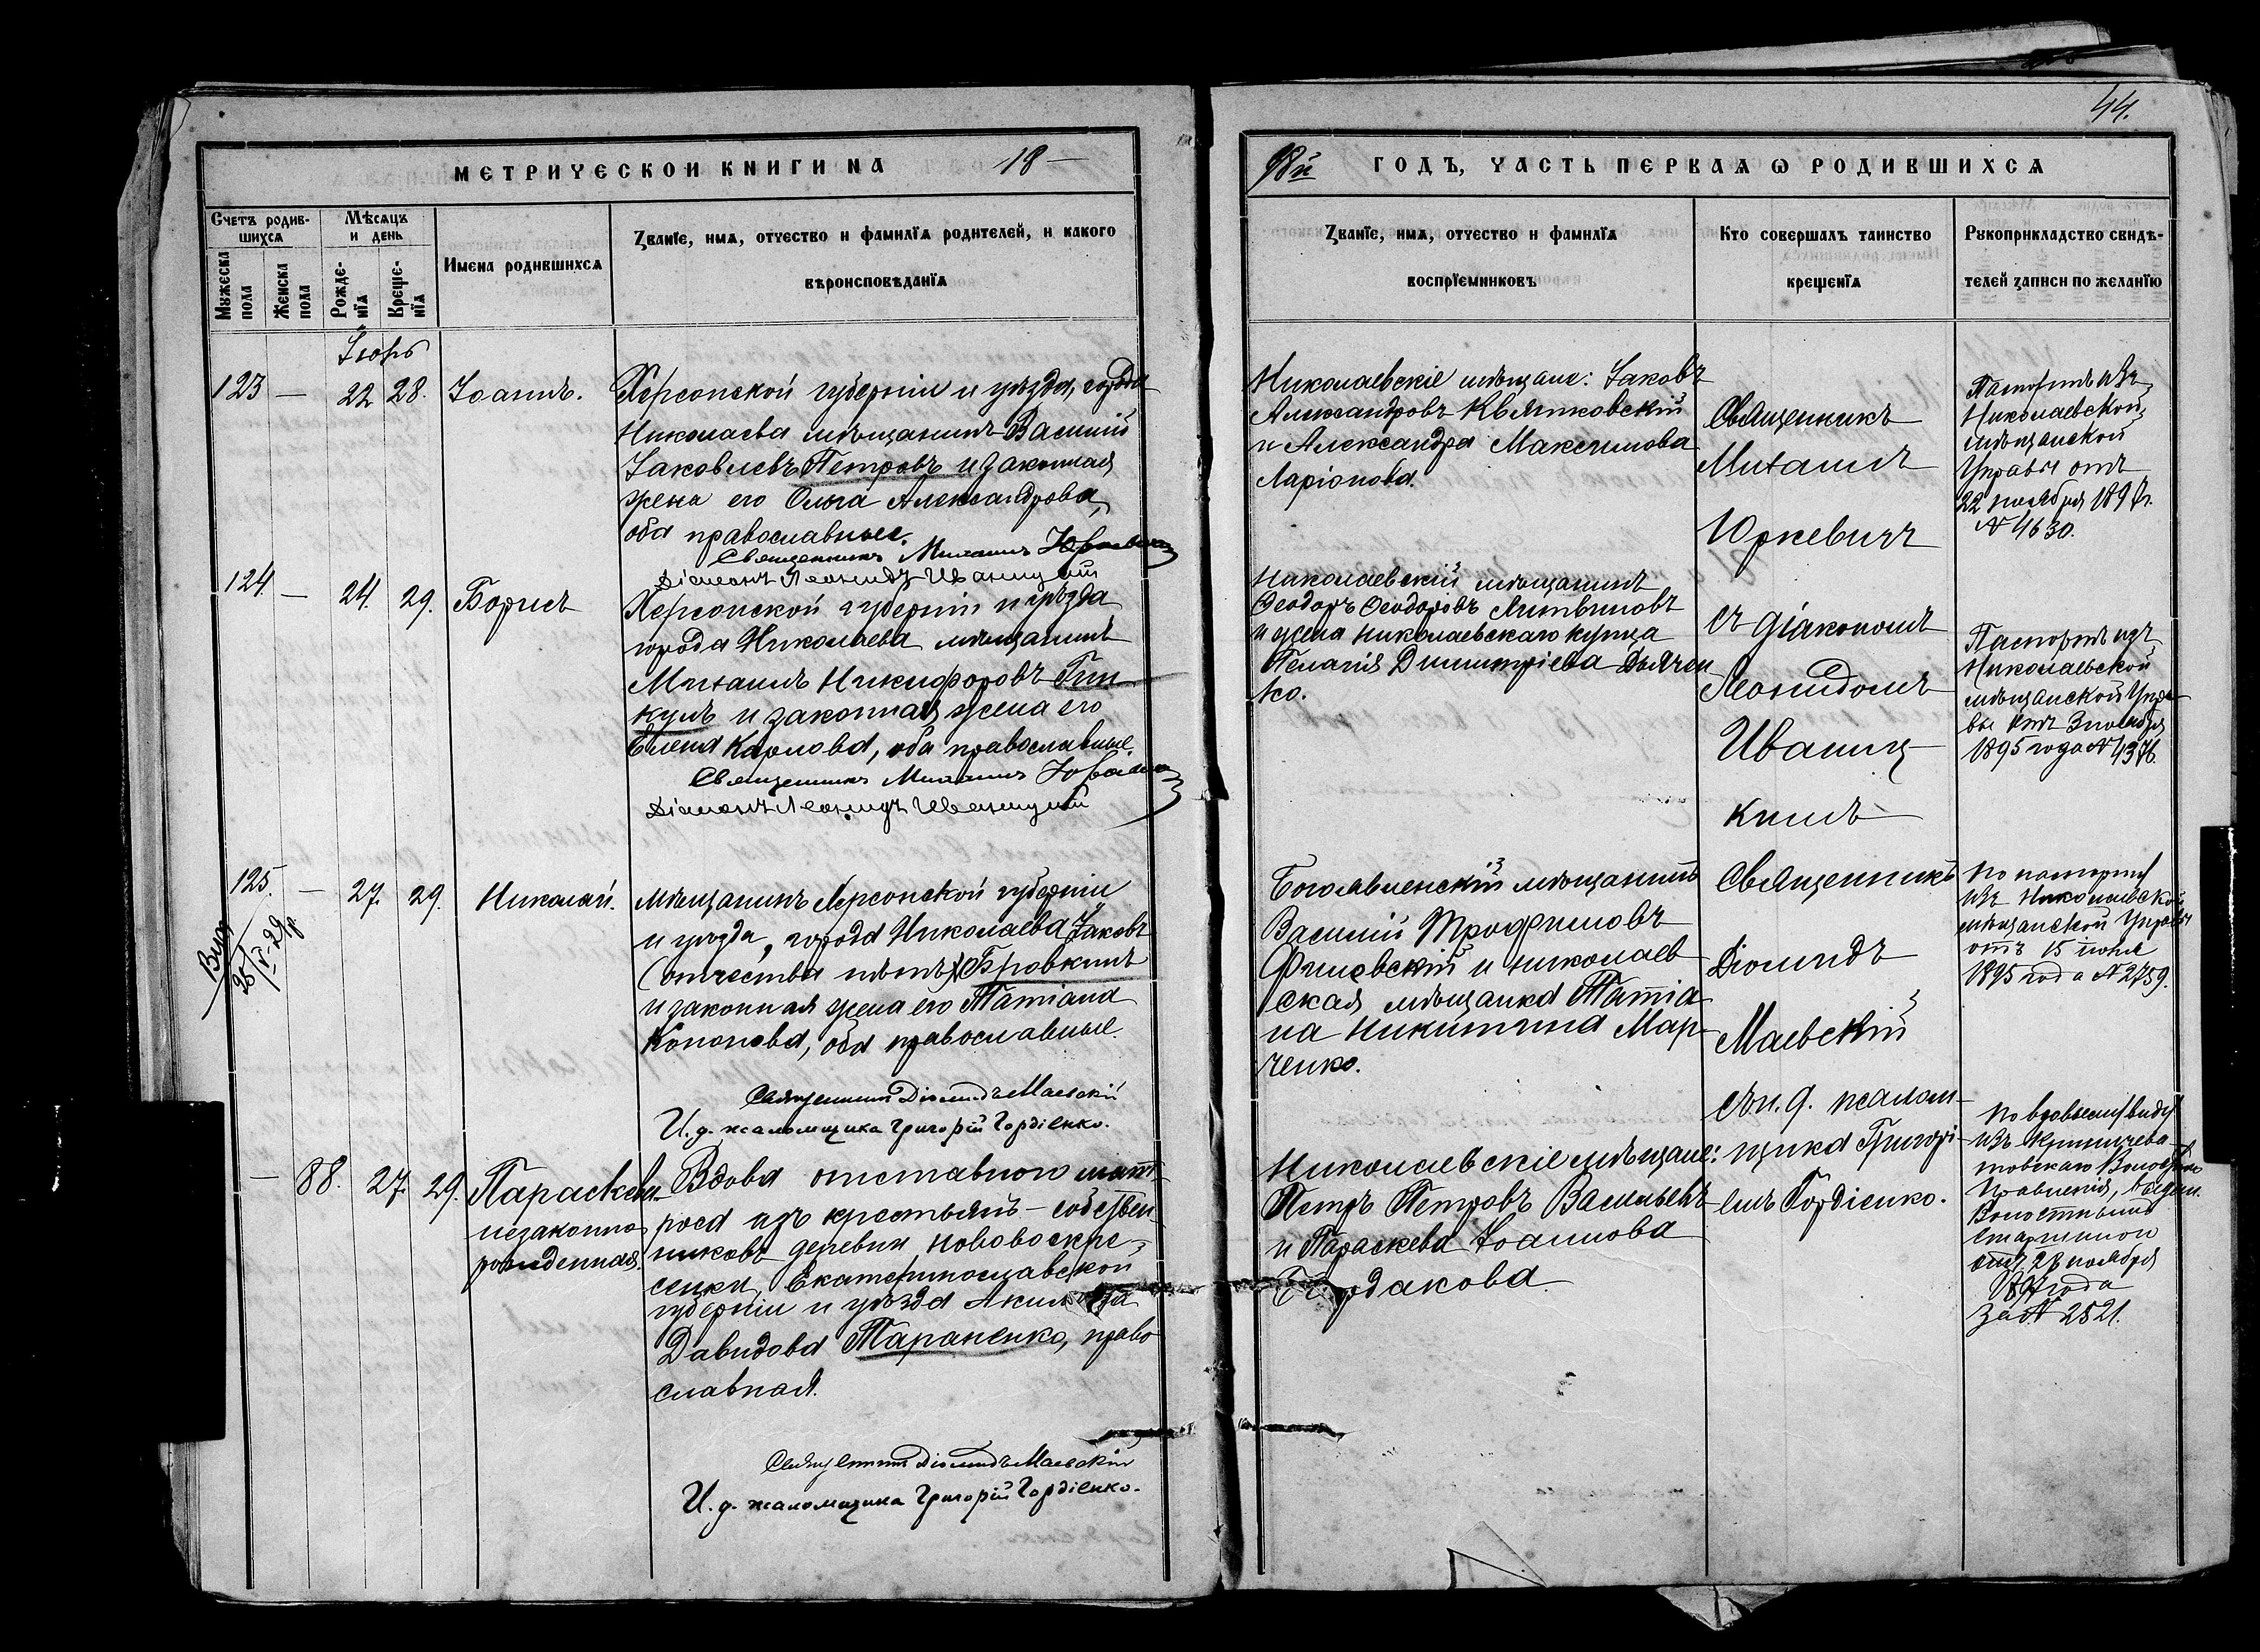 44.
МЕТРИЧЕСКОИ КНИГИ НА 18—
98й ГОДЪ, ЧАСТЬ ПЕРВАЯ Ѡ РОДИВШИХСЯ
Счетъ родив-
шихся
Мѣсяцъ
и день
Мужеска
пола
Женска
пола
Рожде-
нїя
Креще-
нїя
Имена родившихся
Званїе, имя, отчество и фамилїя родителей, и какого
вѣроисповѣданїя
Званїе, имя, отчество и фамилїя
воспрїемниковъ
Кто совершалъ таинство
крещенїя
Рукоприкладство свидѣ-
телей записи по желанїю
123 — 22 28. Іоаннъ.
Херсонской губерніи и уѣзда, города
Николаева мѣщанинъ Василій
Іаковлевъ Петровъ и законная
жена его Ольга Александрова,
оба православные.
Священникъ Михаилъ Юркевичъ
Діаконъ Леонидъ Иваницкий
Николаевскіе мѣщане: Іаковъ
Александровъ Квятковскій
и Александра Максимова
Ларіонова.
Священникъ
Михаилъ
Юркевичъ
съ діакономъ
Леонидомъ
Иваниц-
кимъ
Паспортъ изъ
Николаевской
мѣщанской
Управы отъ
22 ноября 1897г.
№ 4630.
124. — 24. 29. Борисъ
Херсонской губерніи и уѣзда
города Николаева мѣщанинъ
Михаилъ Никифоровъ Гин-
кулъ и законная жена его
Елена Карлова, оба православные.
Священникъ Михаилъ Юркевичъ
Діаконъ Леонидъ Иваницкий
Николаевскій мѣщанинъ
Ѳеодоръ Ѳеодоровъ Литвиновъ
и жена николаевскаго купца
Пелагія Димитріева Дьячен
ко.
Паспортъ изъ
Николаевской
мѣщанской Упра-
вы отъ 3 ноября
1895 года № 4376.
125. — 27. 29. Николай.
Мѣщанинъ Херсонской губерніи
и уѣзда, города Николаева Іаковъ
(отчества нѣтъ) Бровкинъ
и законная жена его Татіана
Кононова, оба православные.
Священникъ Діомидъ Маевскій
И. д. псаломщика Григорій Гордіенко.
Богоявленскій мѣщанинъ
Василій Трофимовъ
и николаев
ская мѣщанка Татіа-
на Никитина Мар-
ченко.
Священникъ
Діомидъ
Маевскій
съ и. д. псалом-
щика Григорі-
емъ Гордіенко.
По паспорту
изъ Николаевской
мѣщанской Управы
отъ 15 іюня
1895 года № 2759.
— 88. 27. 29. Параскева
незаконно
рожденная.
Вдова отставного мат-
роса изъ крестьянъ-собствен-
никовъ деревни Нововоскре-
сенки, Екатеринославской
губерніи и уѣзда
Давидова Тараненко, право-
славная.
Священникъ Діомидъ Маевскій
И. д. псаломщика Григорій Гордіенко.
Николаевскіе мѣщане:
Петръ Петровъ Васильевъ
и Параскева Іоаннова
По вдовьему виду
изъ
Волостного
Правленія,
Волостнымъ
старшиною
отъ 28 ноября
1897 года
за № 2521.